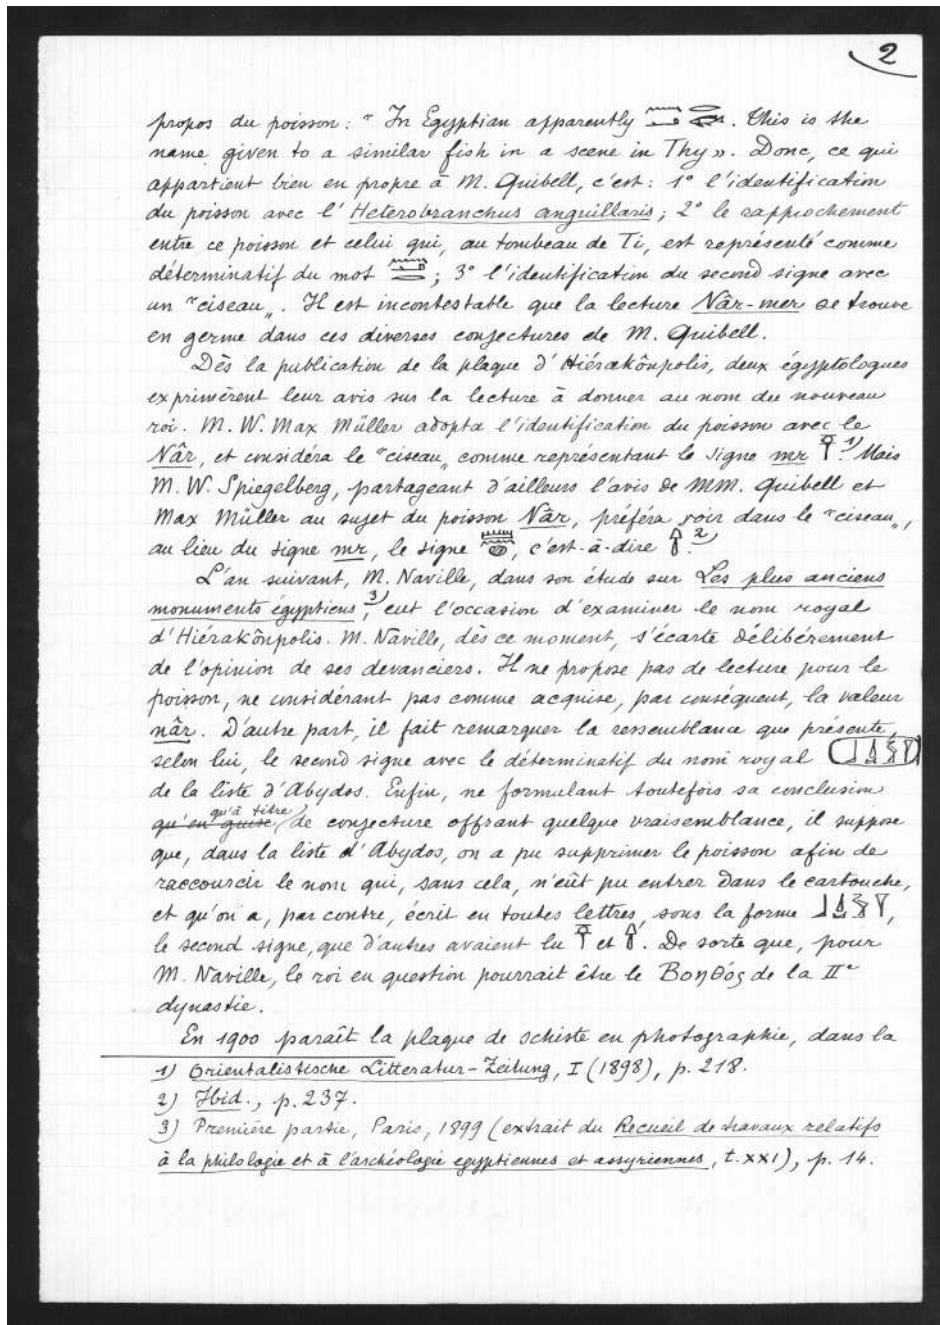 2
propos du poisson : " In Egyptian apparently . This is the
name given to a similar fish in a scene in Thy ». Donc, ce qui
appartient bien en propre à M. Quibell, c'est : 1° l'identification
du poisson avec l' Heterobranchus anguillaris ; 2° le rapprochement
entre ce poisson et celui qui, au tombeau de Ti, est représenté comme
déterminatif du mot ; 3° l'identification du second signe avec
un "ciseau„. Il est incontestable que la lecture Nâr-mer se trouve
en germe dans ces diverses conjectures de M. Quibell.
Dès la publication de la plaque d'Hiérakônpolis, deux égyptologues
exprimèrent leur avis sur la lecture à donner au nom du nouveau
roi. M. W. Max Müller adopta l'identification du poisson avec le
Nâr, et considéra le "ciseau„ comme représentant le signe mr . 1) Mais
M. W. Spiegelberg, partageant d'ailleurs l'avis de MM. Quibell et
Max Müller au sujet du poisson Nâr, préféra voir dans le "ciseau„,
au lieu du signe mr, le signe , c'est-à-dire . 2)
L'an suivant, M. Naville, dans son étude sur Les plus anciens
monuments égyptiens, 3) eut l'occasion d'examiner le nom royal
d'Hiérakônpolis. M. Naville, dès ce moment, s'écarte délibérément
de l'opinion de ses devanciers. Il ne propose pas de lecture pour le
poisson, ne considérant pas comme acquise, par conséquent, la valeur
nâr. D'autre part, il fait remarquer la ressemblance que présente,
selon lui, le second signe avec le déterminatif du nom royal
de la liste d'Abydos. Enfin, ne formulant toutefois sa conclusion
qu'en guise qu'à titre de conjecture offrant quelque vraisemblance, il suppose
que, dans la liste d'Abydos, on a pu supprimer le poisson afin de
raccourcir le nom qui, sans cela, n'eût pu entrer dans le cartouche,
et qu'on a, par contre, écrit en toutes lettres, sous la forme ,
le second signe, que d'autres avaient lu et . De sorte que, pour
M. Naville, le roi en question pourrait être le Βοηθός de la IIe
dynastie.
En 1900 paraît la plaque de schiste en photographie, dans la
1) Orientalistische Litteratur-Zeitung, I (1898), p. 218.
2) Ibid., p. 237.
3) Première partie, Paris, 1899 (extrait du Recueil de travaux relatifs
à la philologie et à l'archéologie egyptiennes et assyriennes, t. XXI), p. 14.